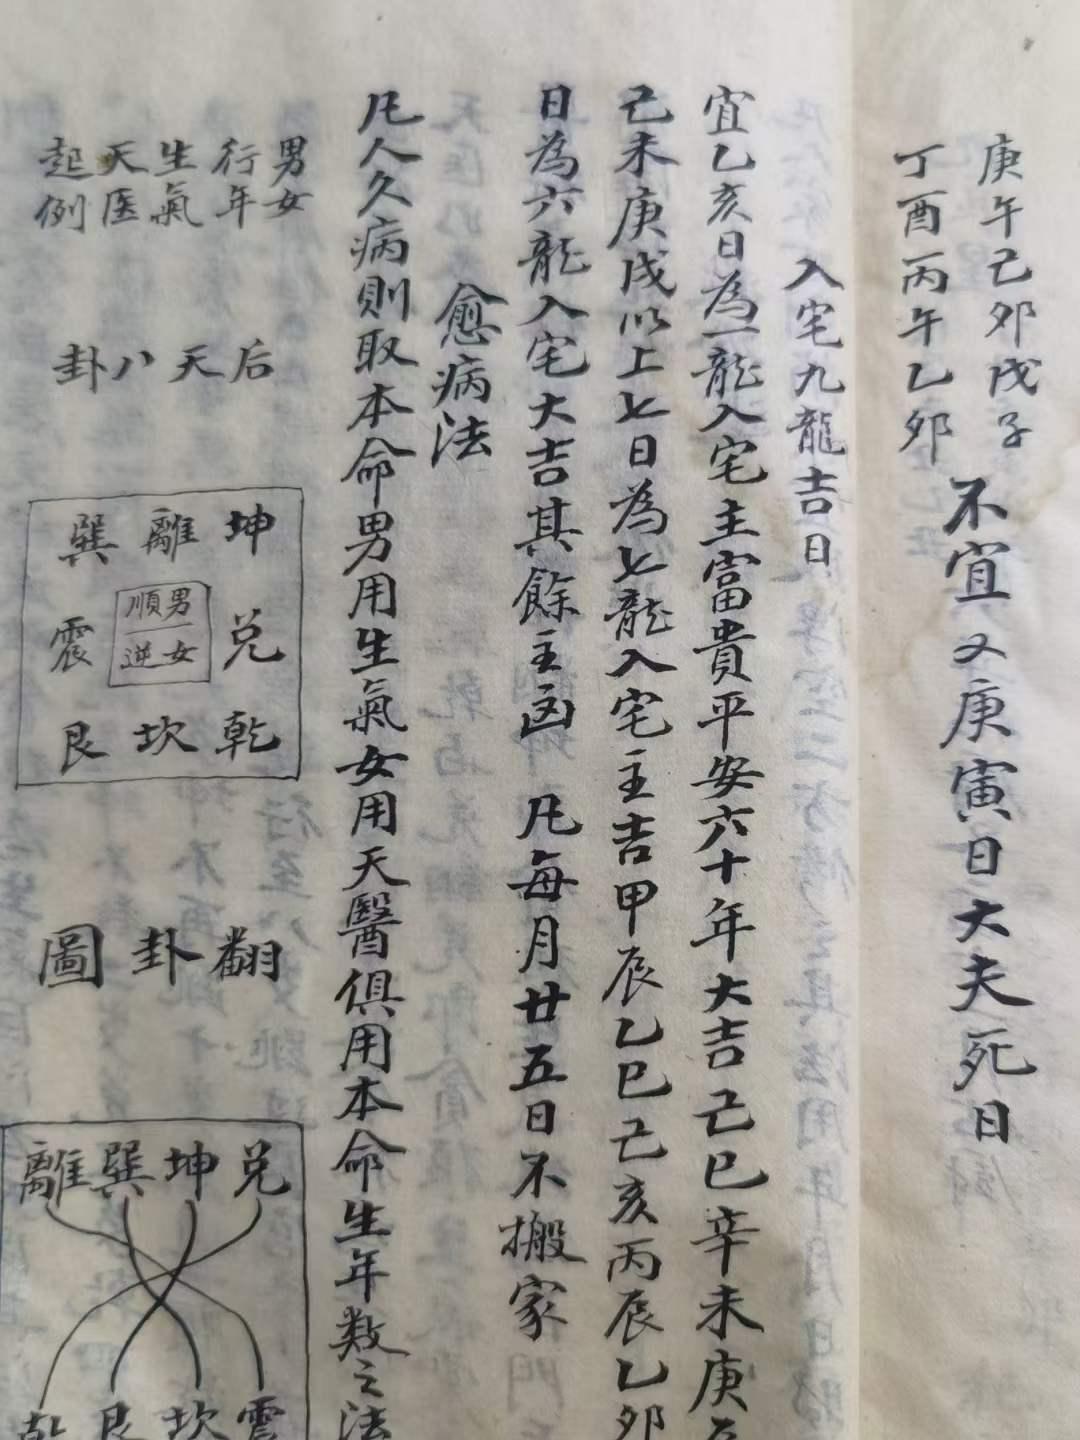 庚午己卯戊子
丁酉丙午乙卯
不宜又庚寅日大夫死日
入宅九龍吉日
宜乙亥日為一龍入宅主富貴平安六十年大吉己巳辛未庚
己未庚戌以上七日為七龍入宅主吉甲辰乙巳己亥丙辰乙卯
日為六龍入宅大吉其餘主凶 凡每月廿五日不搬家
愈病法
凡人久病則取本命男用生氣女用天醫俱用本命生年数之法
男女
行年
生氣
天医
起例
后天八卦
坤離巽
兑震
乾坎艮
男順
女逆
翻卦圖
兑坤巽離
震坎艮乾